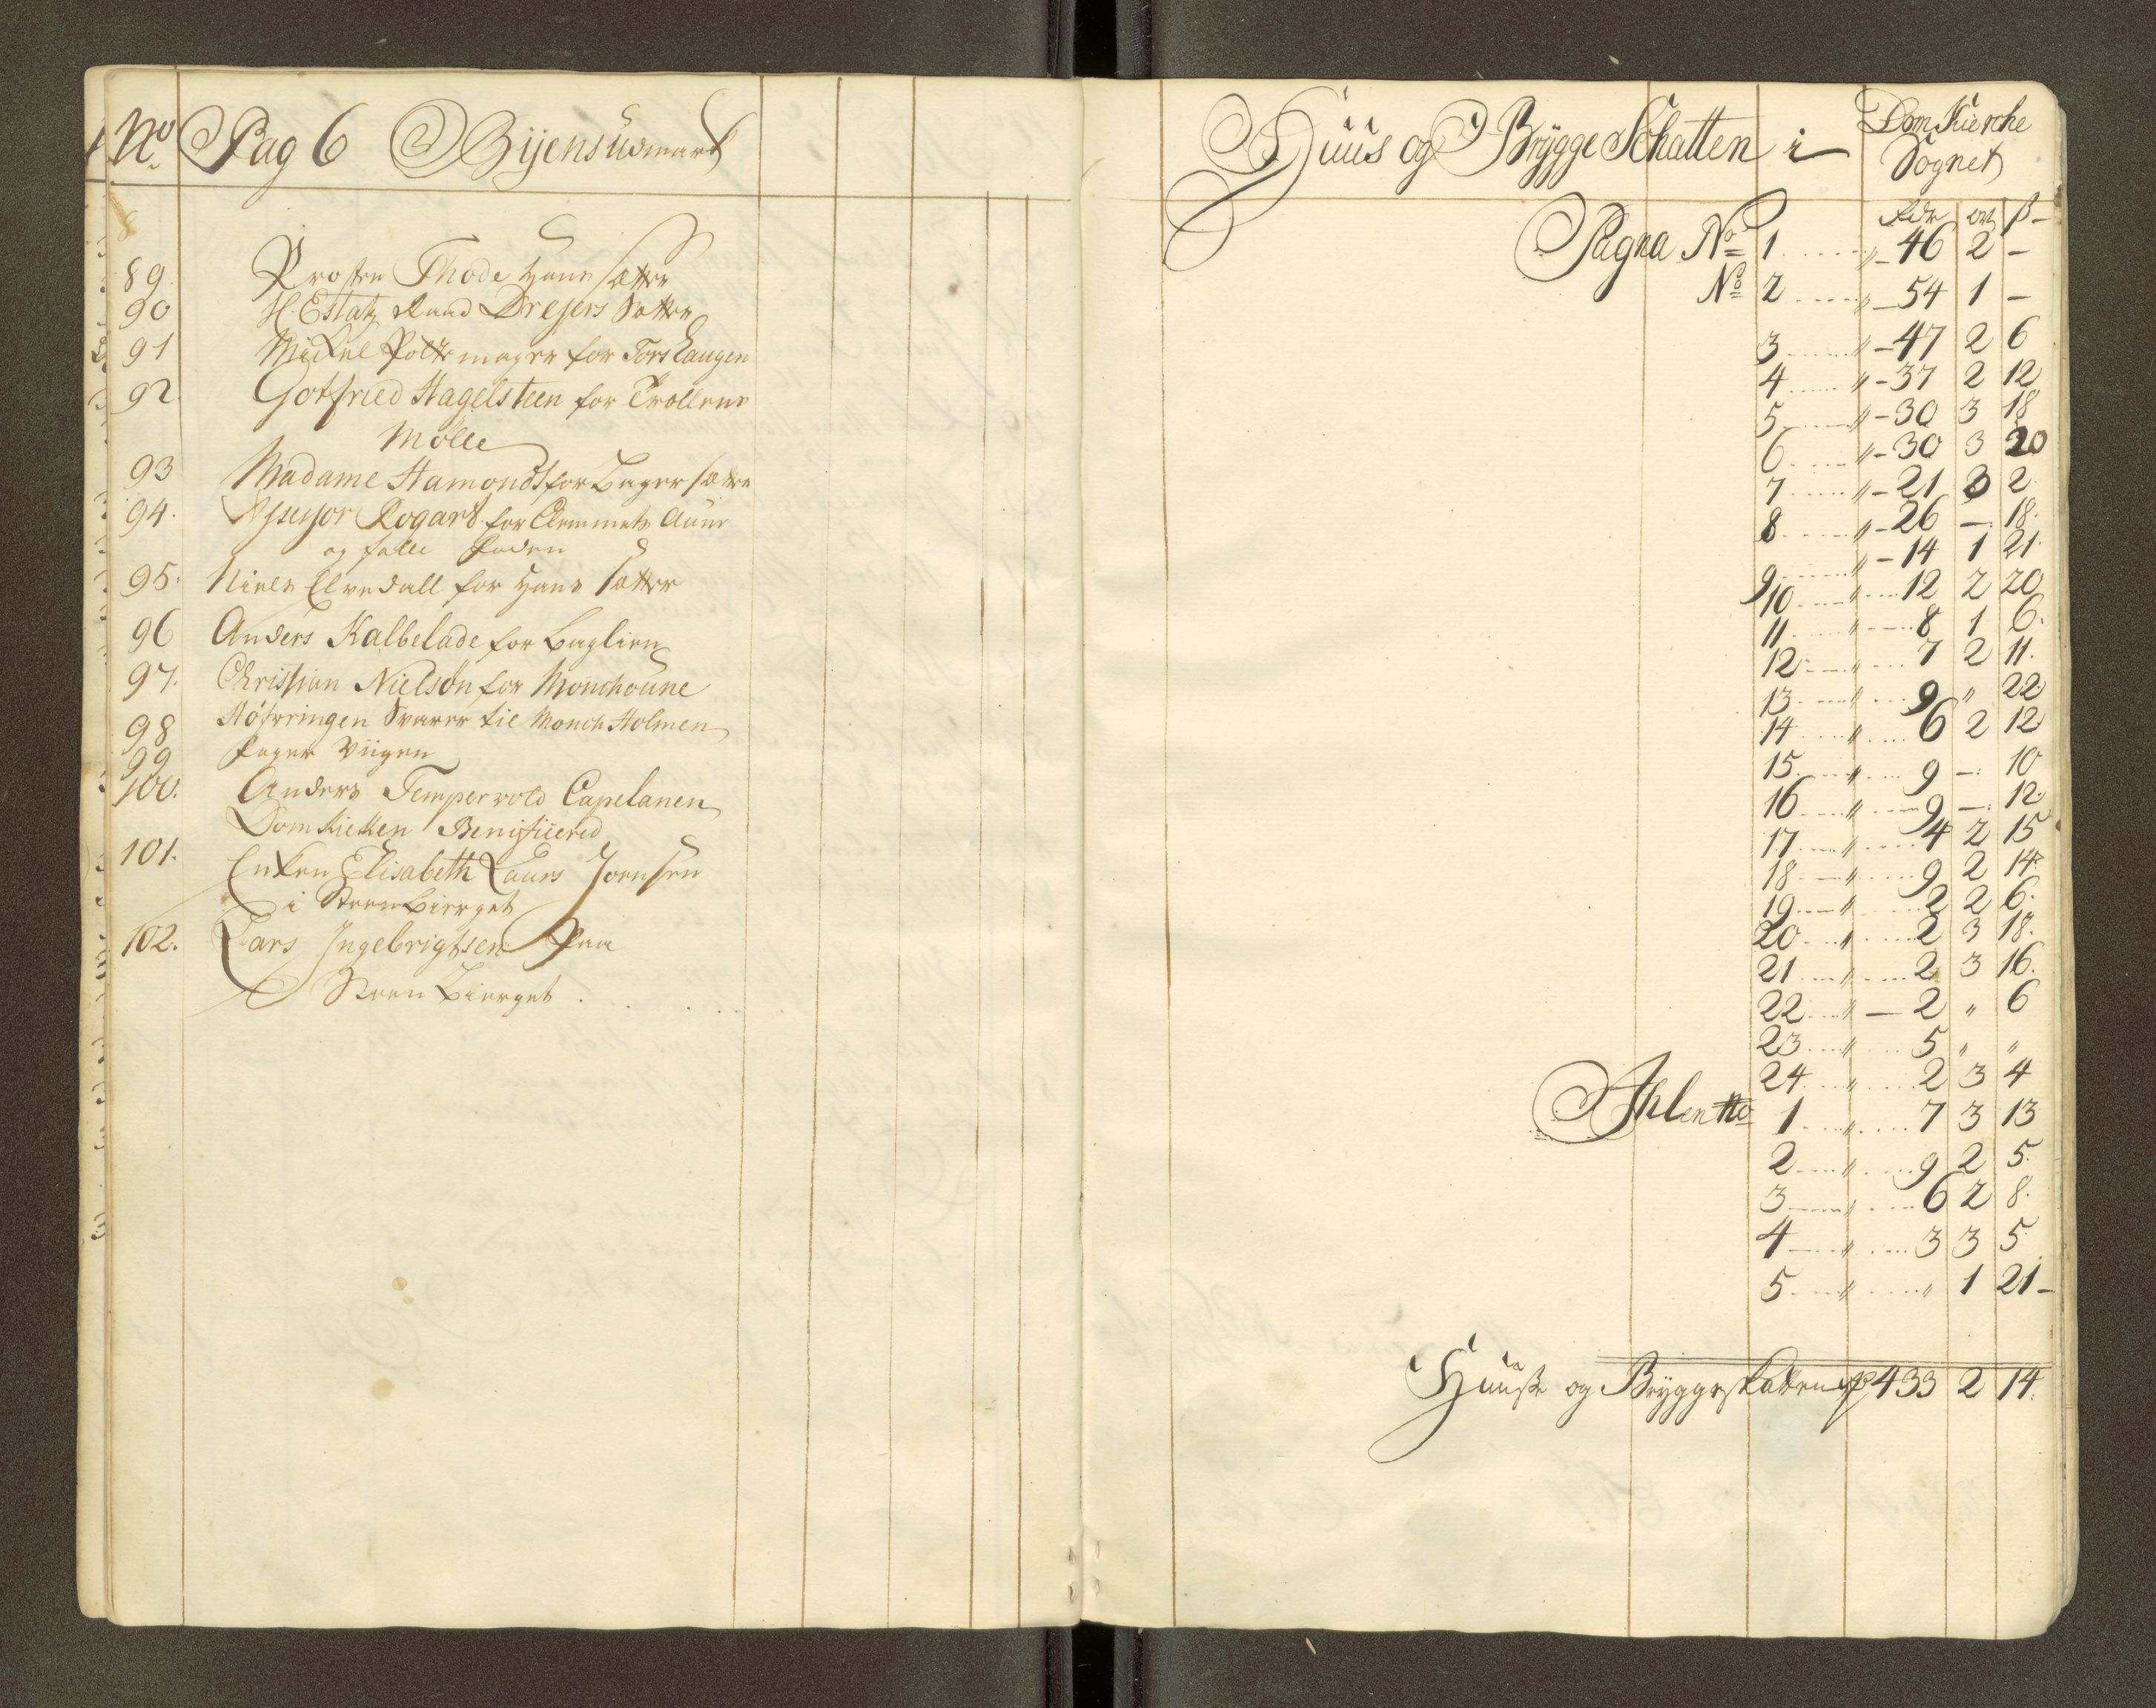 No Pag 6 Bijens Udmarck
89. Prosten Thode Hans sætter
90 H. Estatz Raad Dreyers Sætter
91 Mickel Pottemager for Torslaugen
92 Gotfried Hagelsteen for Trollene
Mølle
93 Madame Hamonds for Bager sætter
94. Assessor Rogart for Clemmets Aune
og
95. Niels Elvedall for Hans sætter
96 Anders Kalbelade for Baglien
97. Christian Nielsøn for Monchoune
98 Svarer til Monch Holmen
99 Viigen
100. Anders Tempervold Capelanen
Domkierken
101. Enken Elisabeth Laurs Joensen
i Steen Bierget
102. Lars Ingebrigtsen Paa
Steen Bierget . . . .
Huus og Brygge Schatten i Dom Kierche
Sognet
Rdr ort ß
Pagna No 1 46 2 –
No 2 54 1 –
3 47 2 6
4 37 2 12
5 30 3 18
6 30 3 20
7 21 3 2
8 26 – 18.
9 14 1 21.
10 12 2 20
11 8 1 6.
12 7 2 11.
13 9 " 22
14 6 2 12
15 9 – 10
16 9 – 12.
17 4 2 15
18 9 2 14.
19 2 2 6.
20 2 3 18.
21 2 3 16.
22 2 " 6
23 5 " "
24 2 3 4
Ihlen No 1 7 3 13
2 9 2 5.
3 6 2 8.
4 3 3 5
5 " 1 21
Huuse og Bryggeskatten 433 2 14.